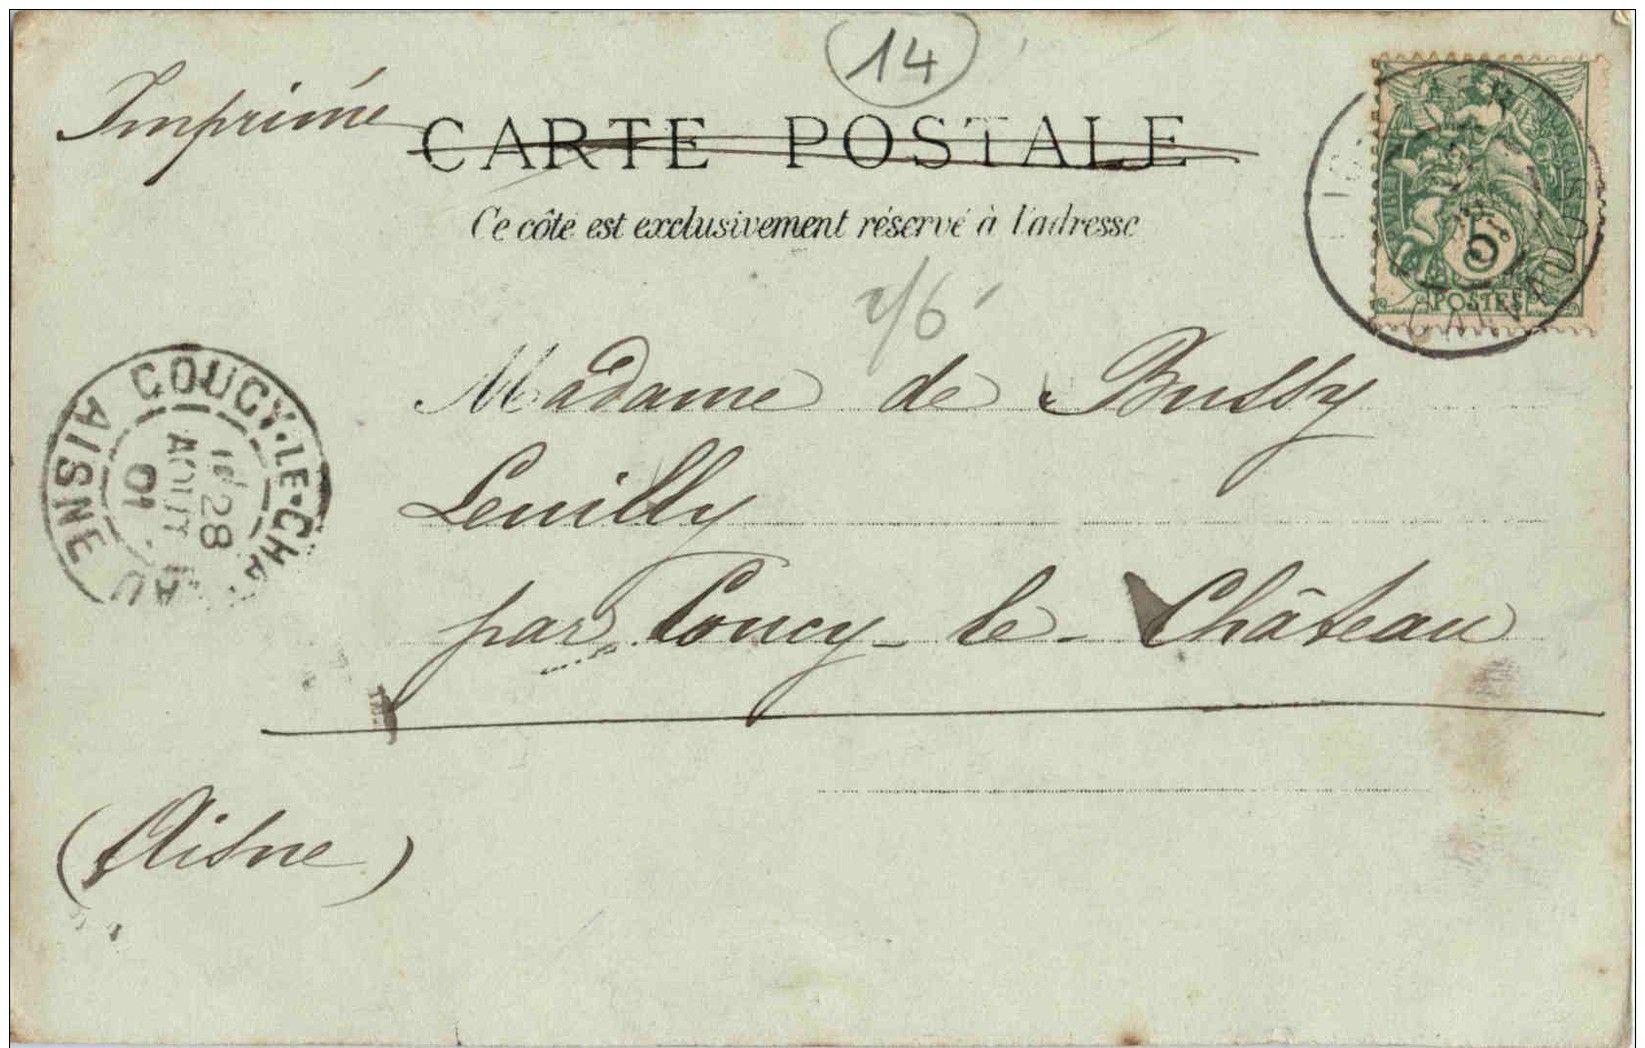 14
Imprimé
CARTE POSTALE
Ce côté est exclusivement réservé à l'adresse
5
POSTES
Madame de Bussy
Leuilly
par Coucy-le-Château
(Aisne)
COUCY-LE-CHATEAU
AISNE
28
AOUT
01